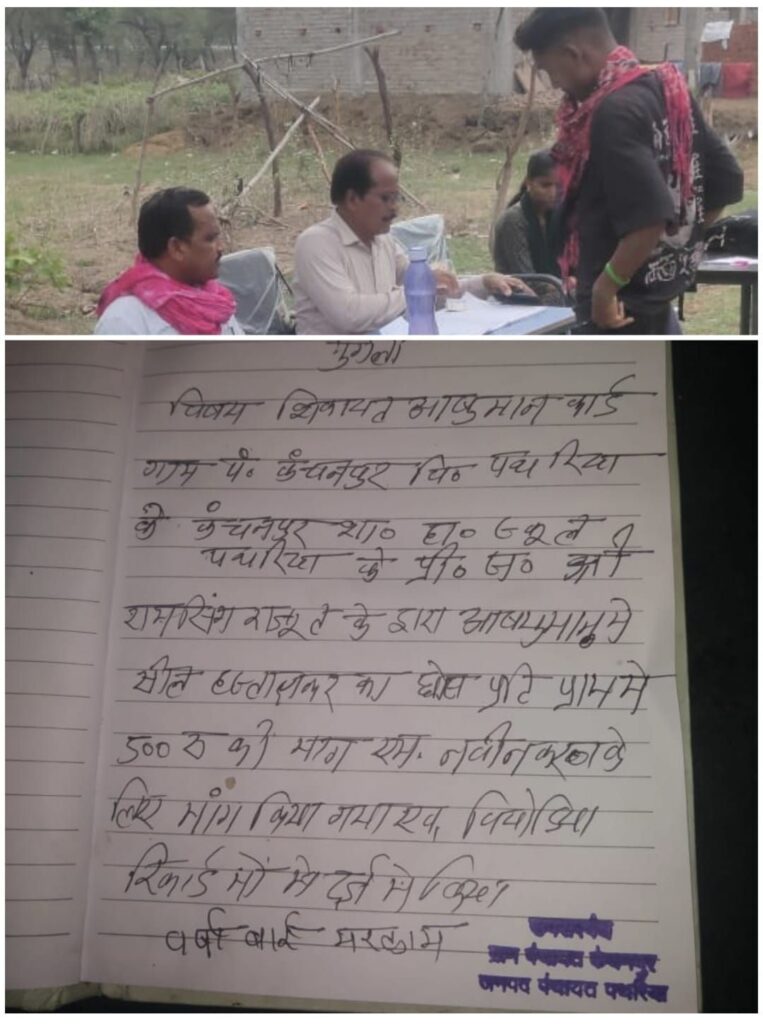 मुंगेली
विषय शिकायत आष्युमान कार्ड
ग्राम पं० कंचनपुर वि० पथरिया
के कंचनपुर शा० हा० स्कूल
पथरिया के प्री० स० श्री
रामसिंग राजपूत के द्वारा
सील हस्ताक्षर का घोस प्रति
500 रु की मांग एम. नवीनकरण के
लिए मांग किया गया एवं विडियो
रिकार्ड में
वर्षा बाई मरकाम
उपसरपंच
ग्राम पंचायत कंचनपुर
जनपद पंचायत पथरिया